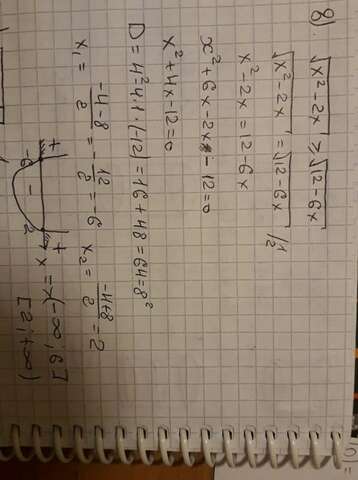 8). √x²-2x ≥ √12-6x
√x²-2x = √12-6x /½
x²-2x = 12-6x
x²+6x-2x-12=0
x²+4x-12=0
D=4²4·1·(-12)=16+48=64=8²
x₁ = -4-8/2 = -12/2 = -6 x₂ = -4+8/2 = 2
+ -6 - 2 + x = (-∞; 6] [2; +∞)